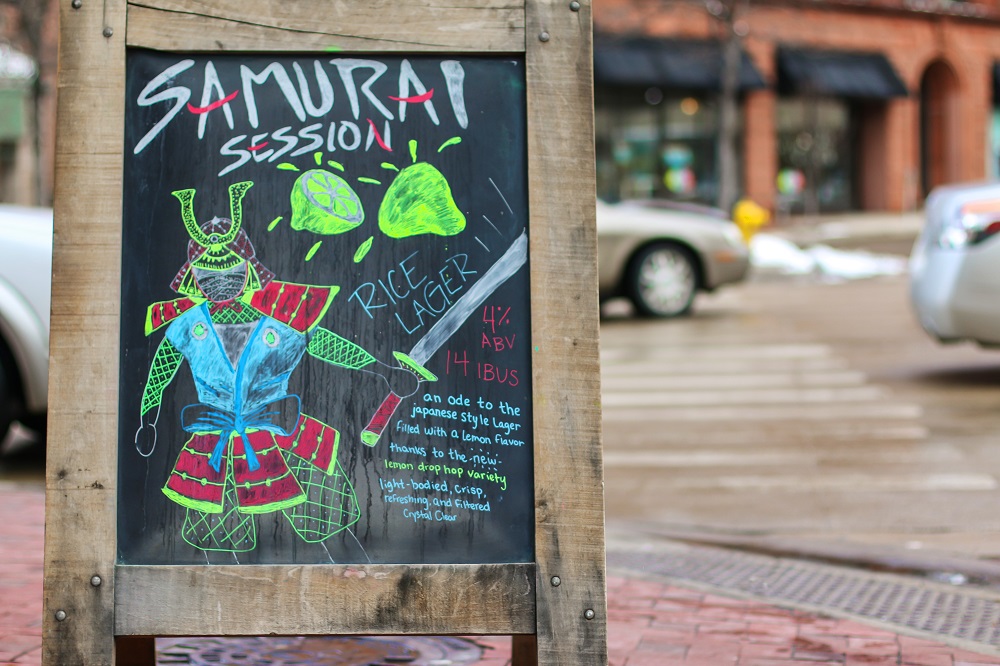 SAMURAI
SESSION
RICE
LAGER
4%
ABV
14 IBUS
an ode to the
japanese style Lager
filled with a lemon flavor
thanks to the new
lemon drop hop variety
light-bodied, crisp,
refreshing, and filtered
Crystal Clear